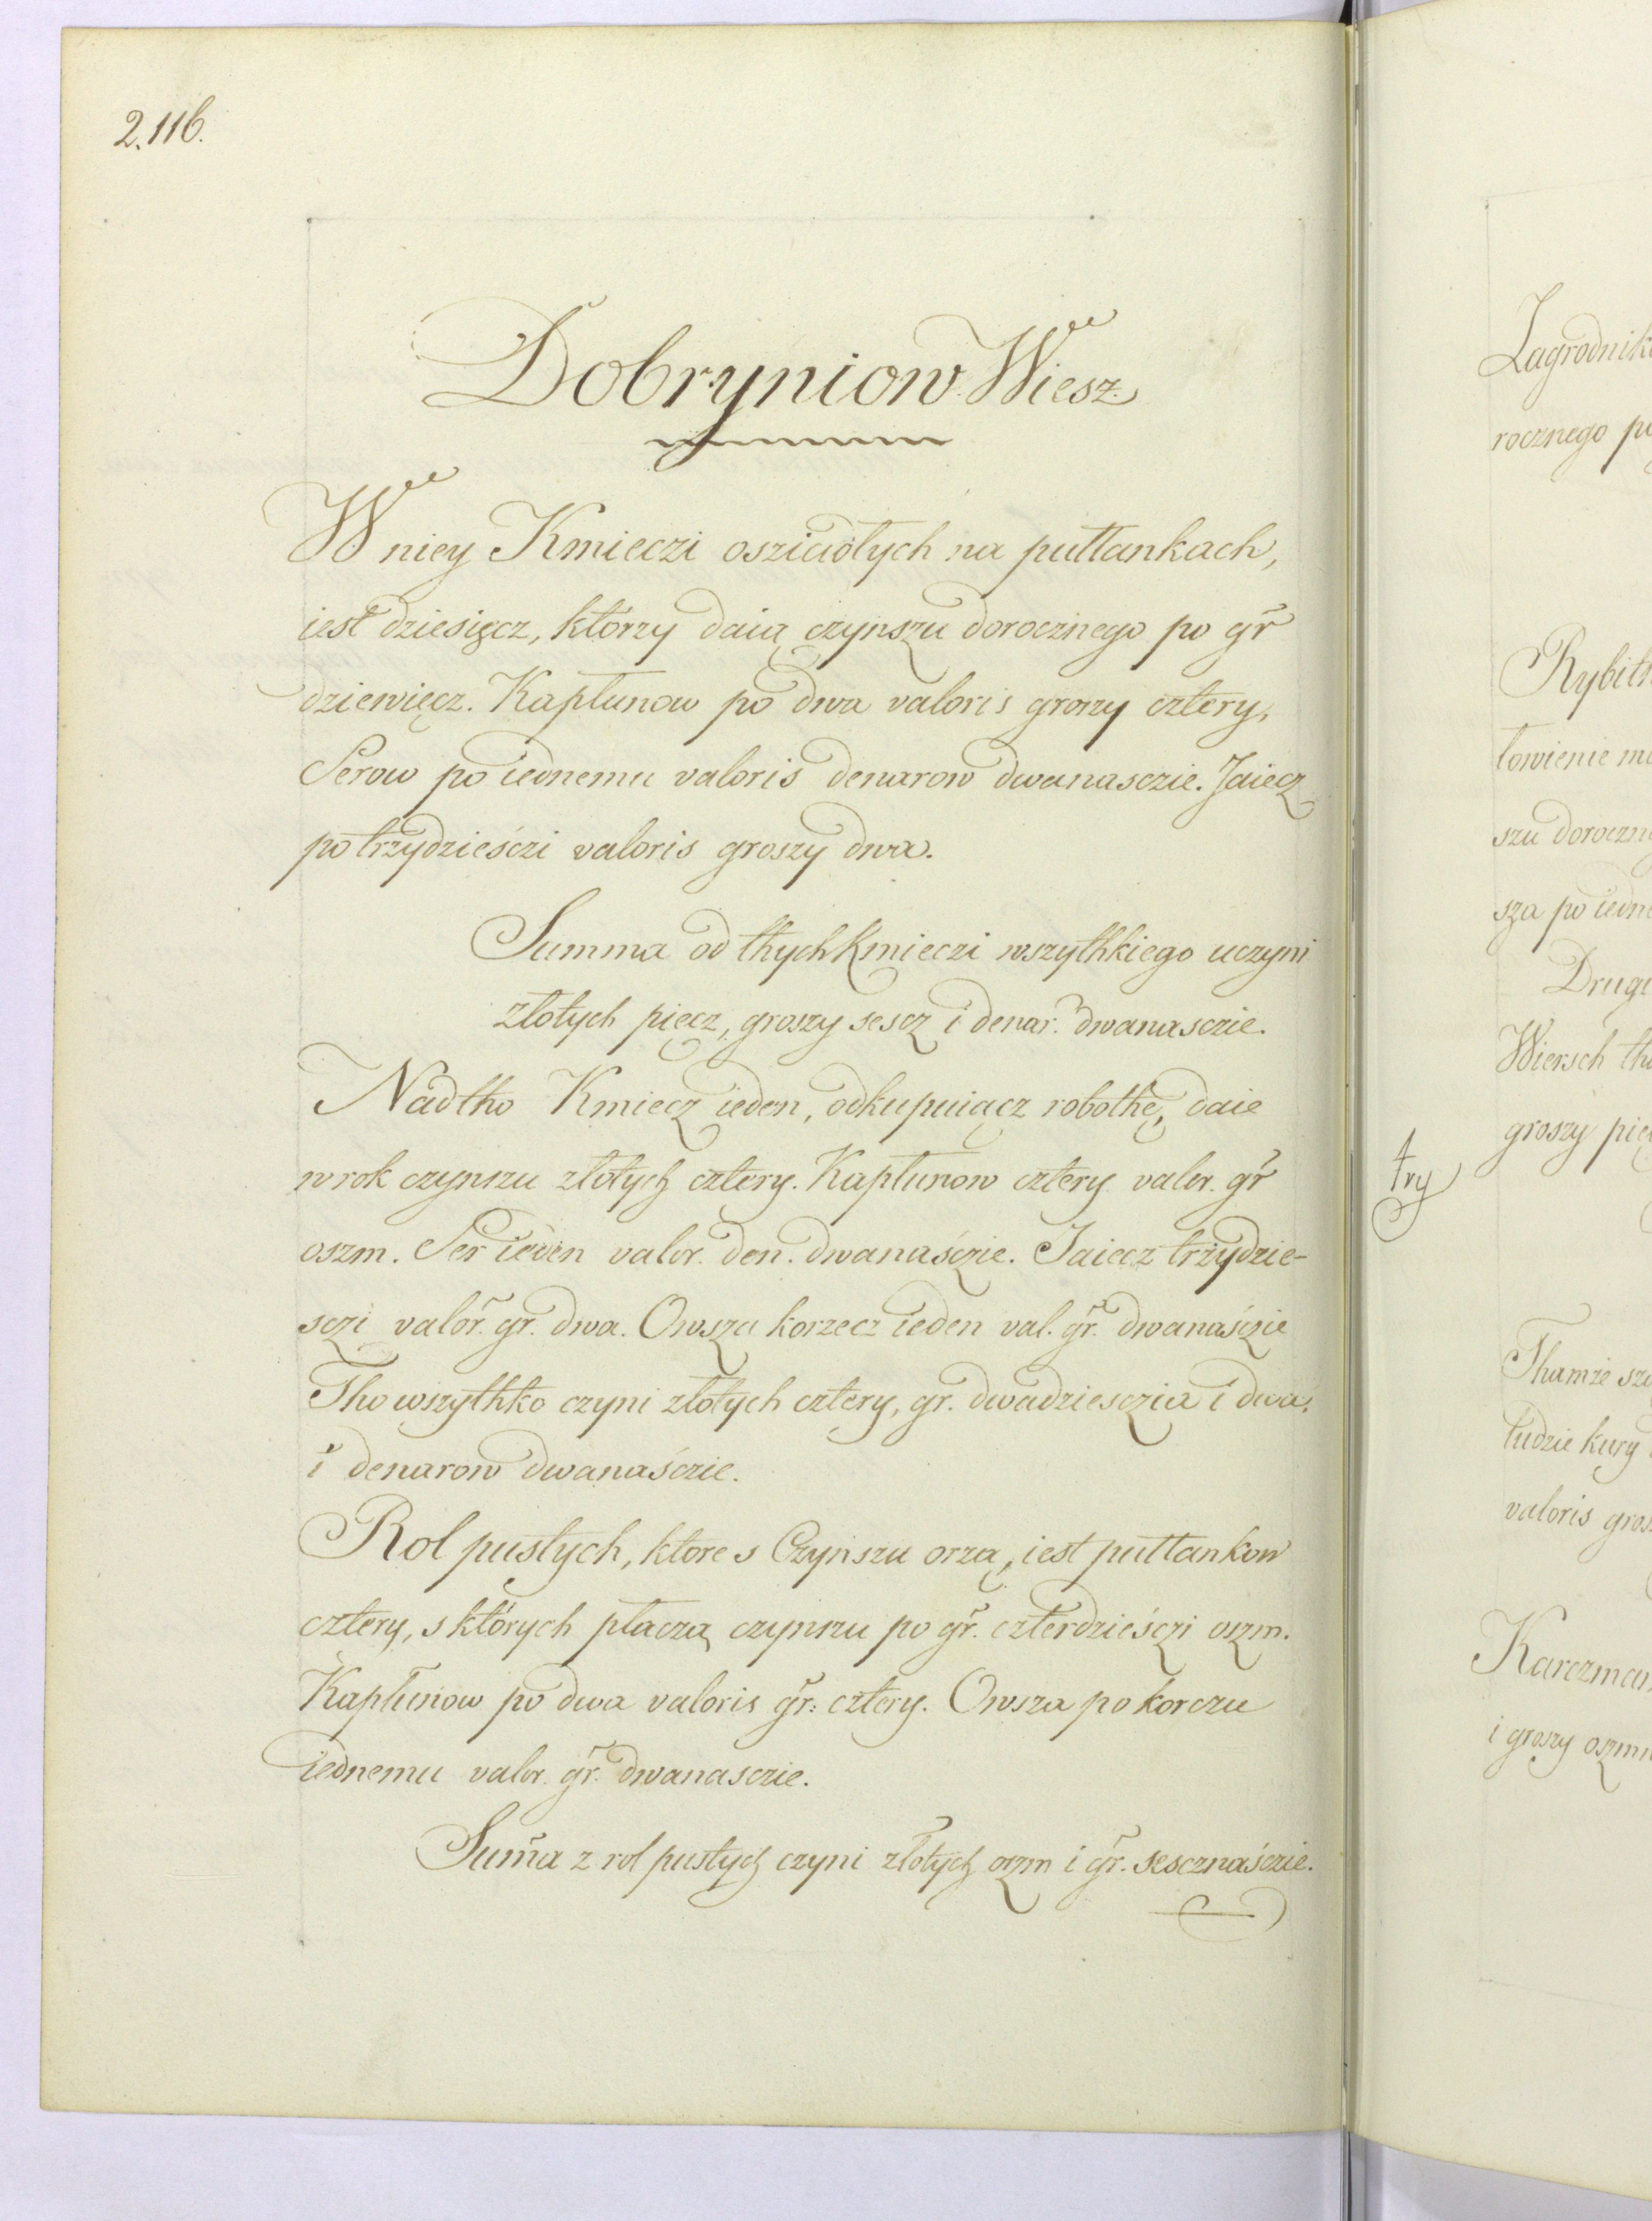 2.116.
Dobryniow Wiesz.
W niey Kmieczi osziadłych na pułłankach,
iest dziesięcz, którzy daią czynszu dorocznego po gr
dziewięcz. Kapłunow po dwa valoris groszy cztery,
Serow po iednemu valoris denarow dwanasczie. Jaiecz
po trzydzieśczi valoris groszy dwa.
Summa od thych Kmieczi wszythkiego uczyni
złotych pięcz, groszy sescz i denar. dwanasczie.
Nadtho Kmiecz ieden, odkupuiącz robothę, daie
w rok czynszu złotych cztery. Kapłunow cztery valor. gr
oszm. Ser ieden valor. den. dwanaśczie. Jaiecz trzydzie-
sczi valor. gr. dwa. Owsza korzecz ieden val. gr. dwanaśczie
Tho wszythko czyni złotych cztery, gr. dwadziesczia i dwa,
i denarow dwanaśczie.
Rol pustych, ktore s Czynszu orzą, iest pułłankow
cztery, s których płaczą czynszu po gr. czterdzieśczi oszm.
Kapłunow po dwa valoris gr: cztery. Owsza po korczu
iednemu valor. gr. dwanasczie.
Sum̃a z rol pustych czyni złotych oszm i gr. sescznaśczie.
Zagrodnik
rocznego
łowienie
szu
sza po
Drugi
Wiersch
groszy
try
Thamże
ludzie kury
valoris
i groszy